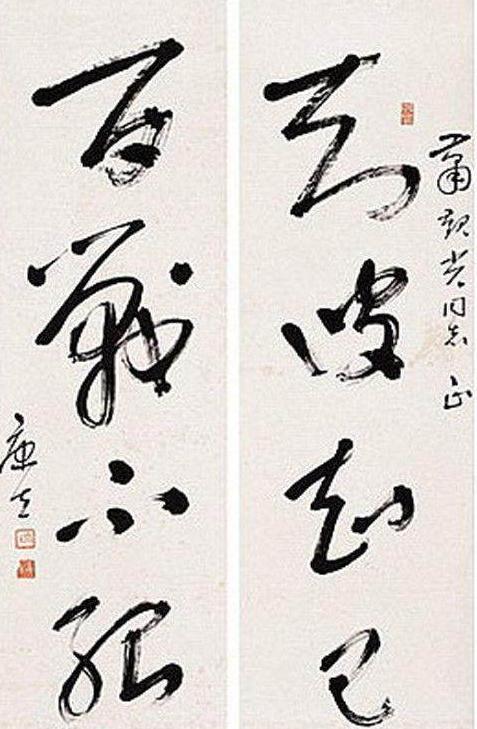 蕭勁光同志 正
知彼知己
百戰不殆
康生